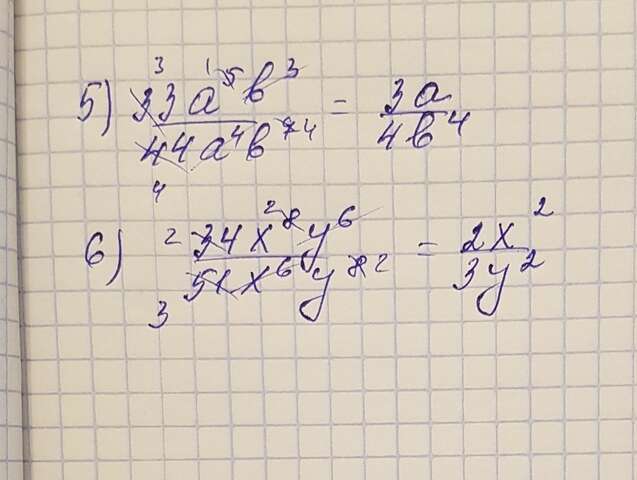 5) 33a⁵b³ / 44a⁴b⁷ = 3a / 4b⁴
6) 34x⁸y⁶ / 51x⁶y⁸ = 2x² / 3y²